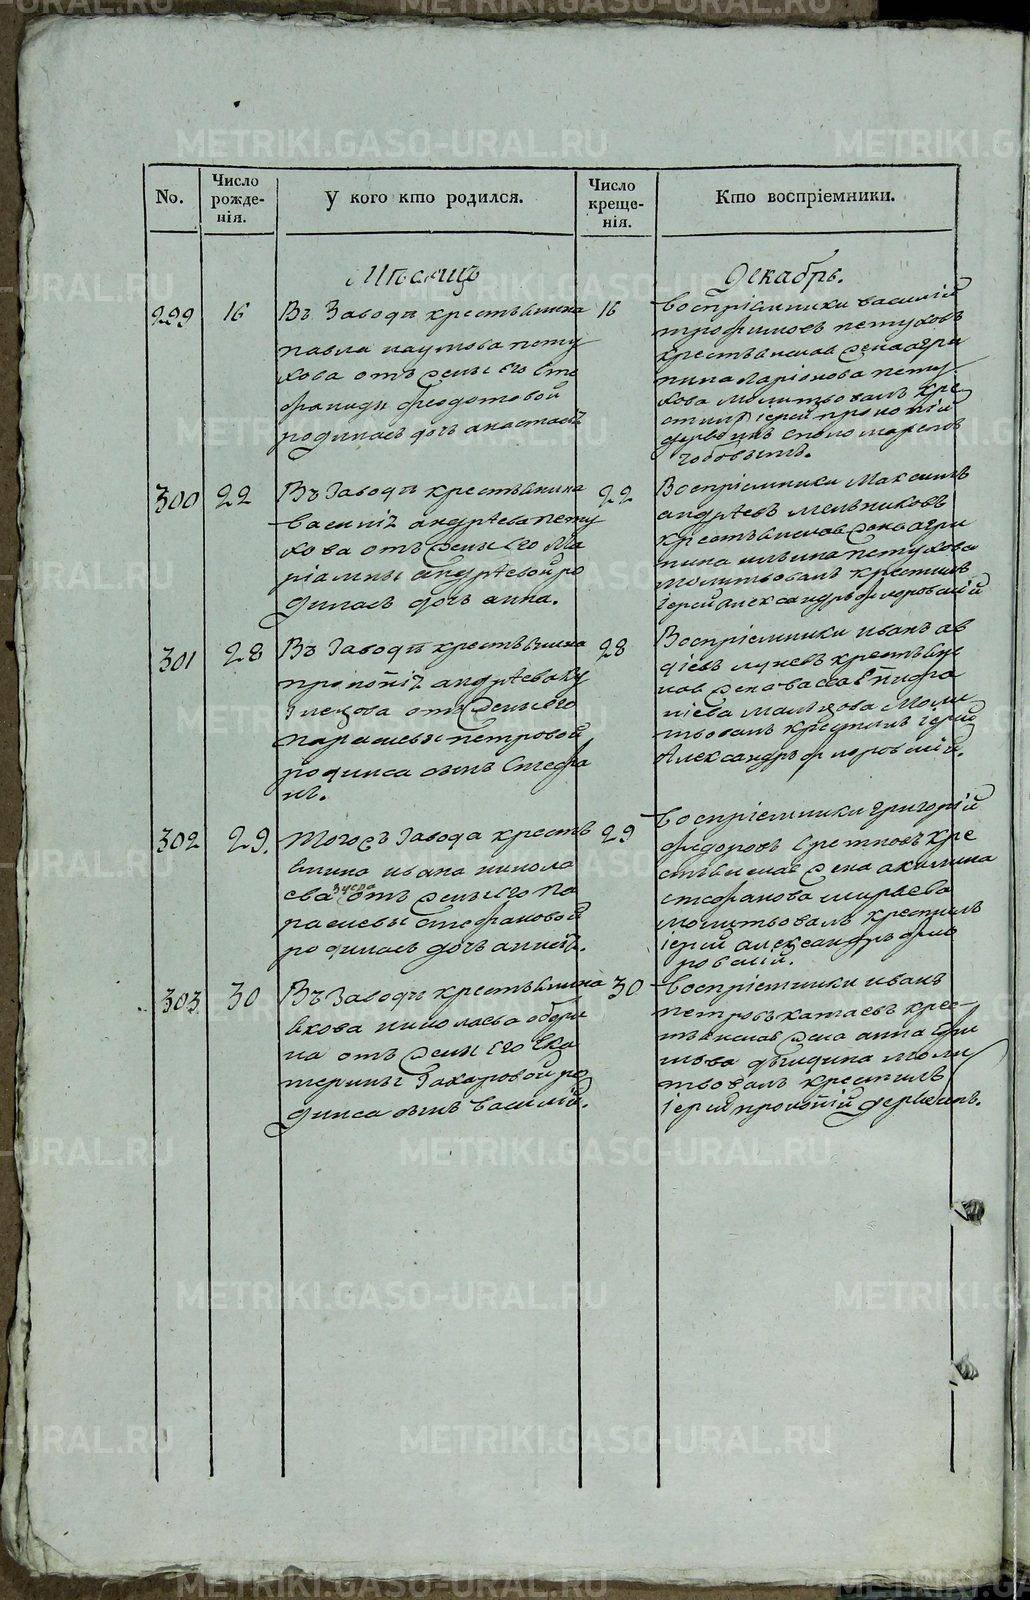 METRIKI.GASO-URAL.RU
No.
Число рожде-
нія.
У кого кто родился.
Число креще-
нія.
Кто воспріемники.
Мѣсяцъ
Декабрь.
299
16
Въ Заводѣ крестьянина
павла наумова пету
хова отъ жены его Сте
фаниды федотовой
родилась дочь анастасія
16
Воспріемники василій
трофимовъ петуховъ
крестьянская жена агри
пина ларіонова пету
хова молитвовалъ кре
стилъ іерей прокопій
300
22
Въ Заводѣ крестьянина
василія андрѣева пету
хова отъ жены его Ма
ріамны андрѣевой ро
дилась дочь анна.
22
Воспріемники Максимъ
андрѣевъ мельниковъ
крестьянская жена агри
пина ильина петухова
молитвовалъ крестилъ
іерей александръ флоровскій
301
28
Въ Заводѣ крестьянина
прокопія андрѣева
отъ жены его
парасковьи петровой
родился сынъ Стефа
нъ.
28
Воспріемники иванъ ав
діевъ крестьян
ская жена васса Епифа
ніева Моли
твовалъ крестилъ іерей
Александръ флоровскій.
302
29.
Тогожъ Завода кресть
янина ивана никола
ева отъ жены его па
расковьи Стефановой
родилась дочь анисія.
29
Воспріемники григорій
федоровъ кре
стьянская жена акилина
стефанова ширяева
молитвовалъ крестилъ
іерей александръ фло
ровскій.
303.
30
Въ Заводѣ крестьянина
якова николаева обори
на отъ жены его Ека
терины Захаровой ро
дился сынъ василій.
30
Воспріемники иванъ
петровъ катаевъ крес
тьянская жена анна
Моли
твовалъ крестилъ
іерей прокопій